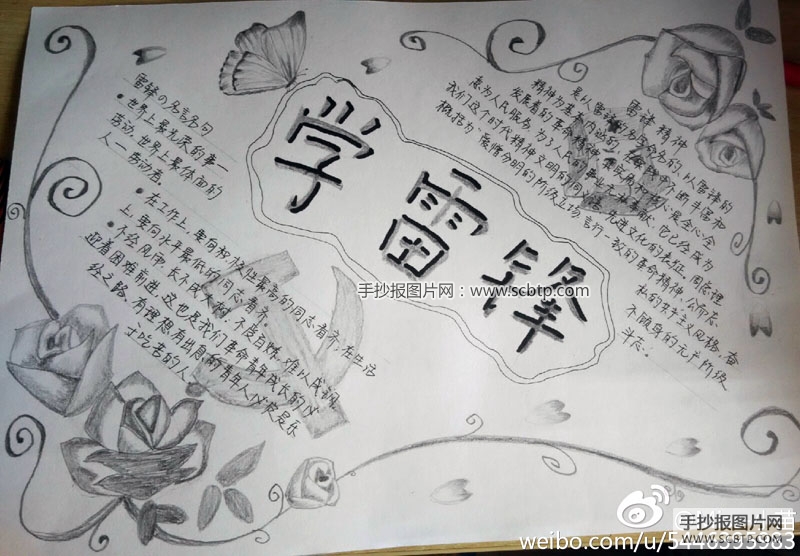 学雷锋
雷锋の名言名句
世界上最光荣的事—
劳动,世界上最体面的
人—劳动者。
在工作上,要向积极性最高的同志看齐,在生活
上,要向水平最低的同志看齐
不经风雨,长不成大树,不受百炼,难以成钢
迎着困难前进,这也是我们革命青年成长的必
经之路,有理想有出息的青年人必定是乐
于吃苦的人
雷锋精神
是以雷锋的名字命名的,以雷锋的
精神为基本内涵的,在实践中不断丰富和
发展着的革命精神,其实质和核心是全心全
意为人民服务,为了人民的事业无私奉献,它已经成为
我们这个时代精神文明的同义语、先进文化的表征,周总理
概括为:爱憎分明的阶级立场、言行一致的革命精神、公而忘
私的共产主义风格,奋
不顾身的无产阶级
斗志。
手抄报图片网:www.scbtp.com
手抄报图片网
WWW.SCBTP.COM